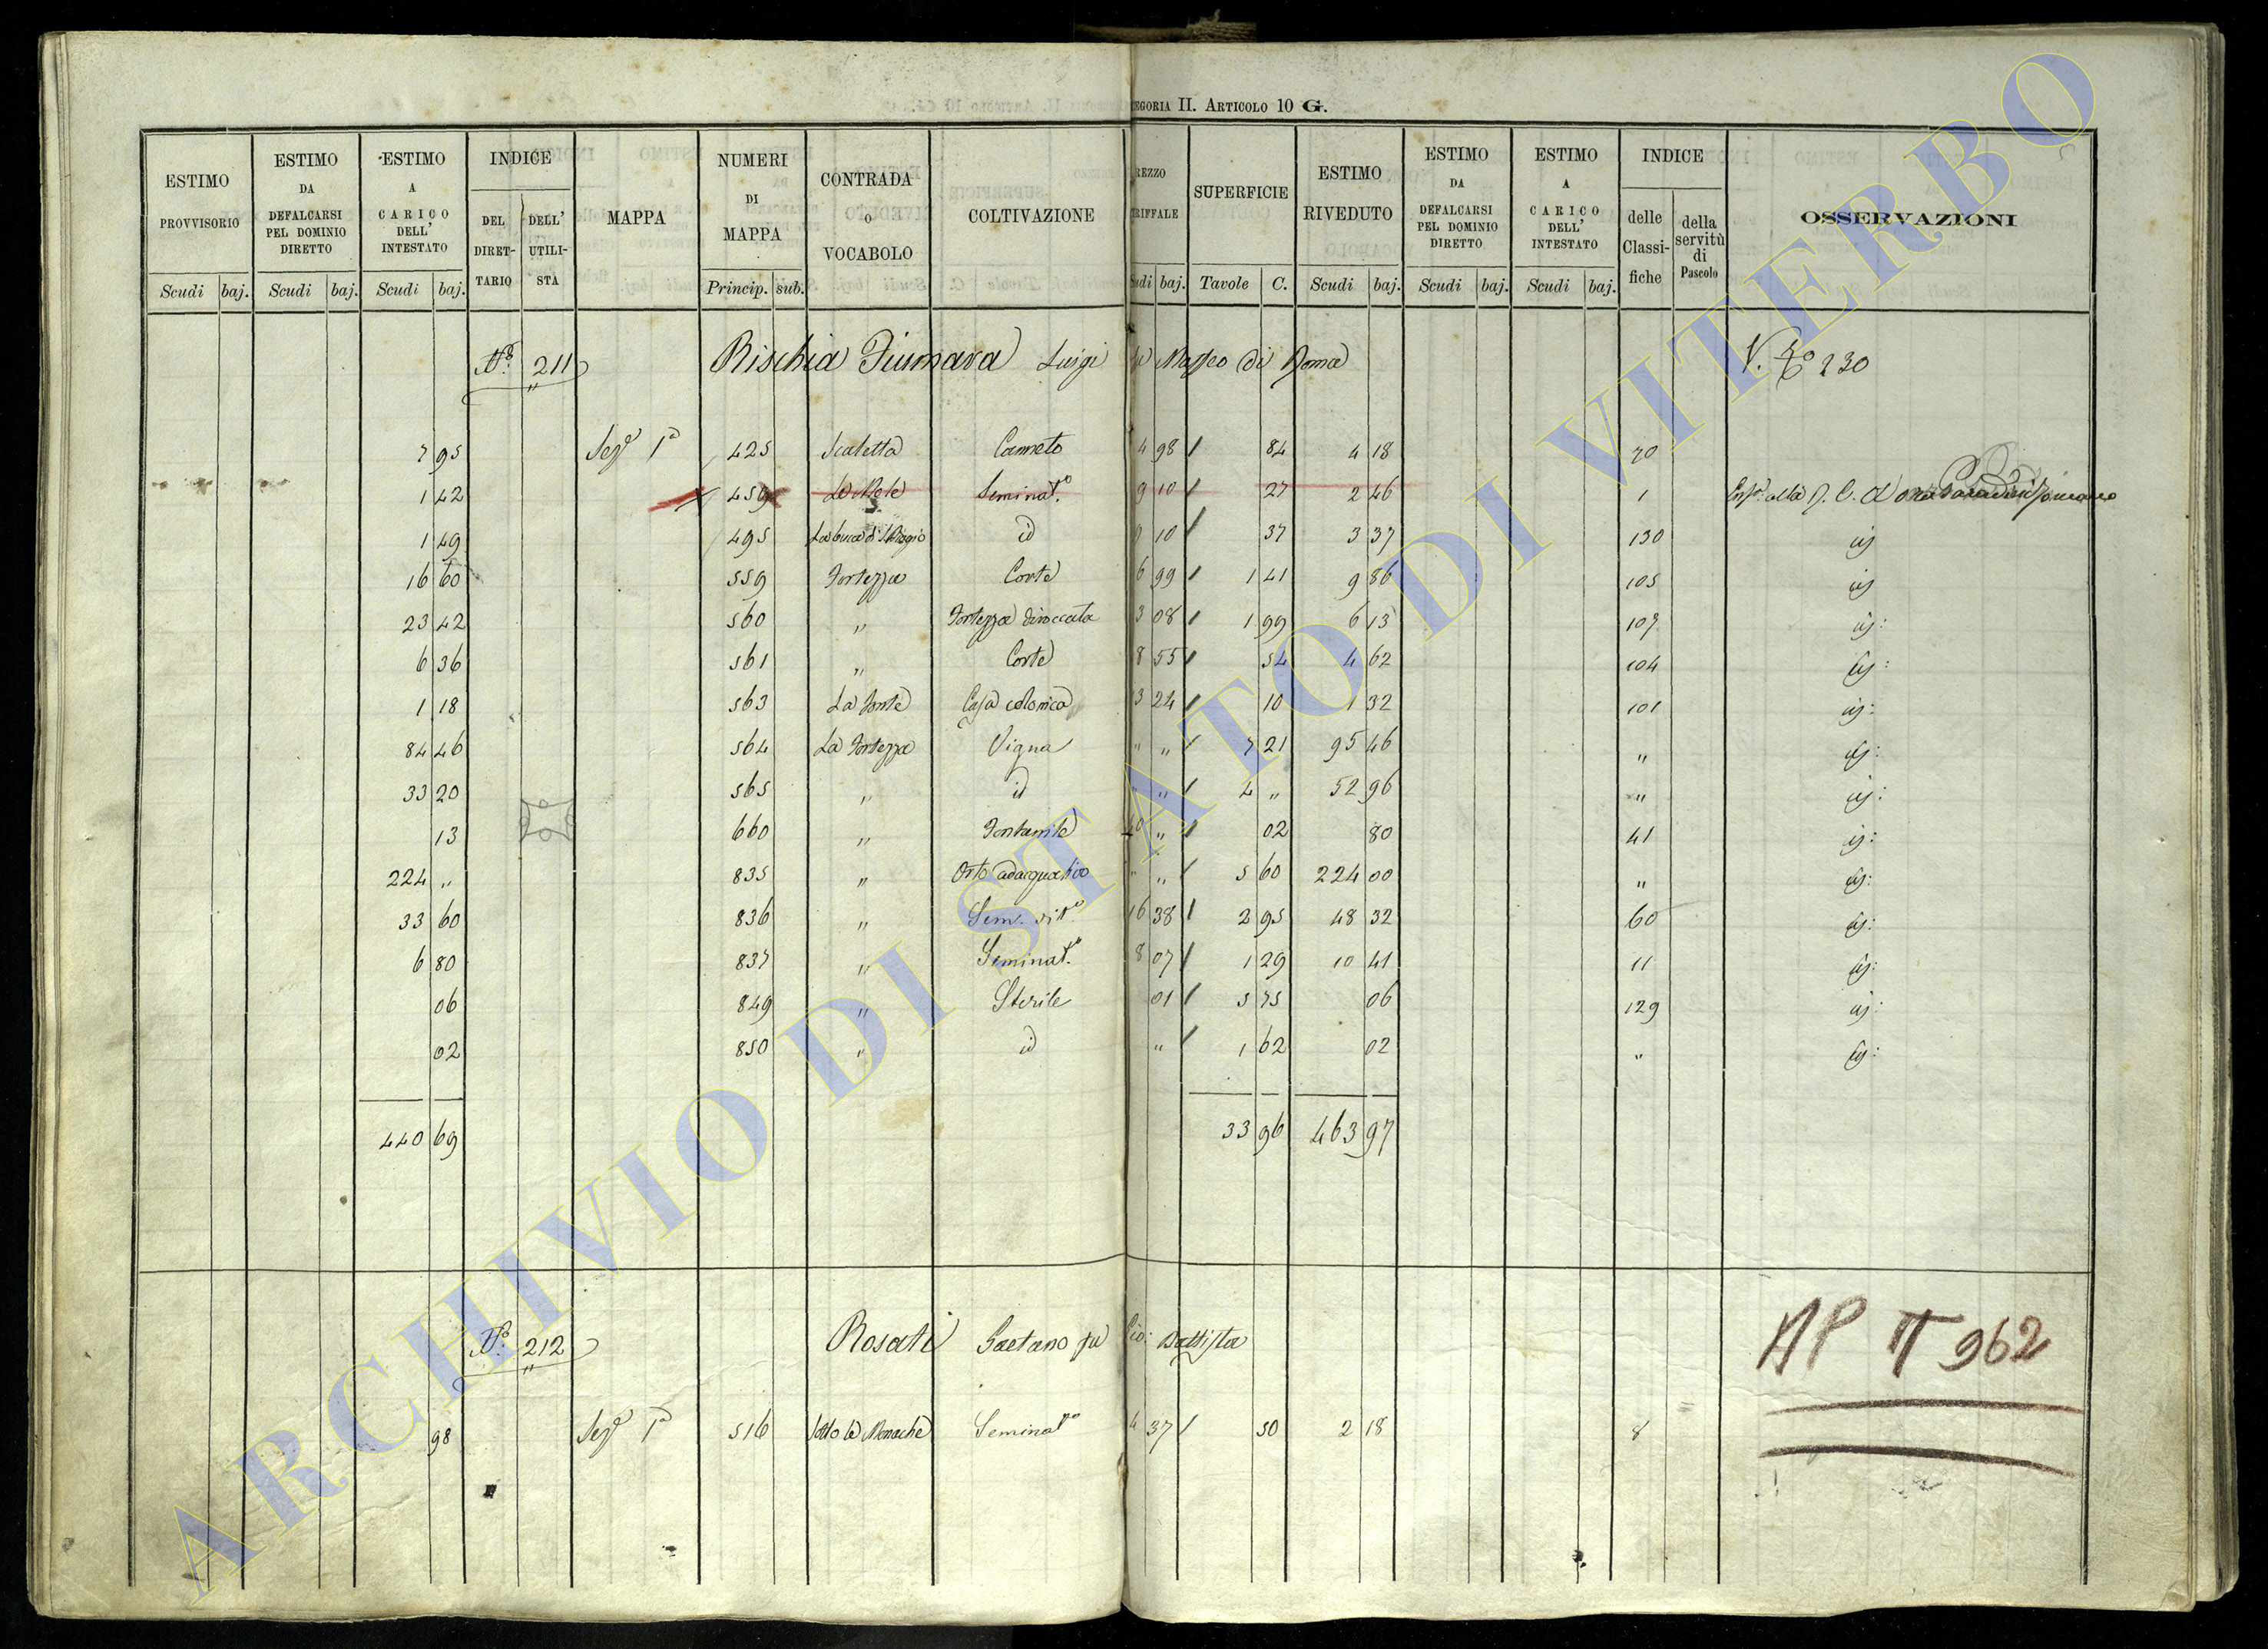 EGORIA II. ARTICOLO 10 G.
ESTIMO PROVVISORIO
ESTIMO DA DEFALCARSI PEL DOMINIO DIRETTO
ESTIMO A CARICO DELL' INTESTATO
INDICE
DEL DIRETTARIO
DELL' UTILISTA
MAPPA
NUMERI DI MAPPA
CONTRADA O VOCABOLO
COLTIVAZIONE
REZZO RIFFALE
SUPERFICIE
ESTIMO RIVEDUTO
ESTIMO DA DEFALCARSI PEL DOMINIO DIRETTO
ESTIMO A CARICO DELL' INTESTATO
INDICE
delle Classifiche
della servitù di Pascolo
OSSERVAZIONI
Scudi baj. Scudi baj. Scudi baj. Princip. sub. udi baj. Tavole C. Scudi baj. Scudi baj. Scudi baj.
N.º 211 Rischia Fiumara Luigi di Roma V. 230
7 95 Sez.e 1a 425 Scaletta Canneto 4 98 84 4 18 70
1 42 459 Le Mole Seminat.º 9 10 27 2 46 1
1 49 495 id 9 10 37 3 37 130 id
16 60 559 Fortezza Corte 6 99 1 41 9 86 105 id
23 42 560 " Fortezza diroccata 3 08 1 99 6 13 107 id:
6 36 561 " Corte 8 55 54 4 62 104 id:
1 18 563 La Fonte Casa colonica 13 24 10 1 32 101 id:
84 46 564 La Fortezza Vigna " " 7 21 95 46 " id:
33 20 565 " id " " 4 " 52 96 " id:
13 660 " Fontanile 40 " 02 80 41 id:
224 " 835 " Orto adacquativo " " 5 60 224 00 " id:
33 60 836 " Sem. vit.º 16 38 2 95 48 32 60 id:
6 80 837 " Seminat.º 8 07 1 29 10 41 11 id:
06 849 " Sterile 01 5 75 06 129 id:
02 850 " id " 1 62 02 " id:
440 69 33 96 463 97
N.º 212 Rosati Gaetano fu Gio: Battista
AP π 962
98 Sez.e 1a 516 Sotto le Monache Seminat.º 4 37 50 2 18 8
ARCHIVIO DI STATO DI VITERBO